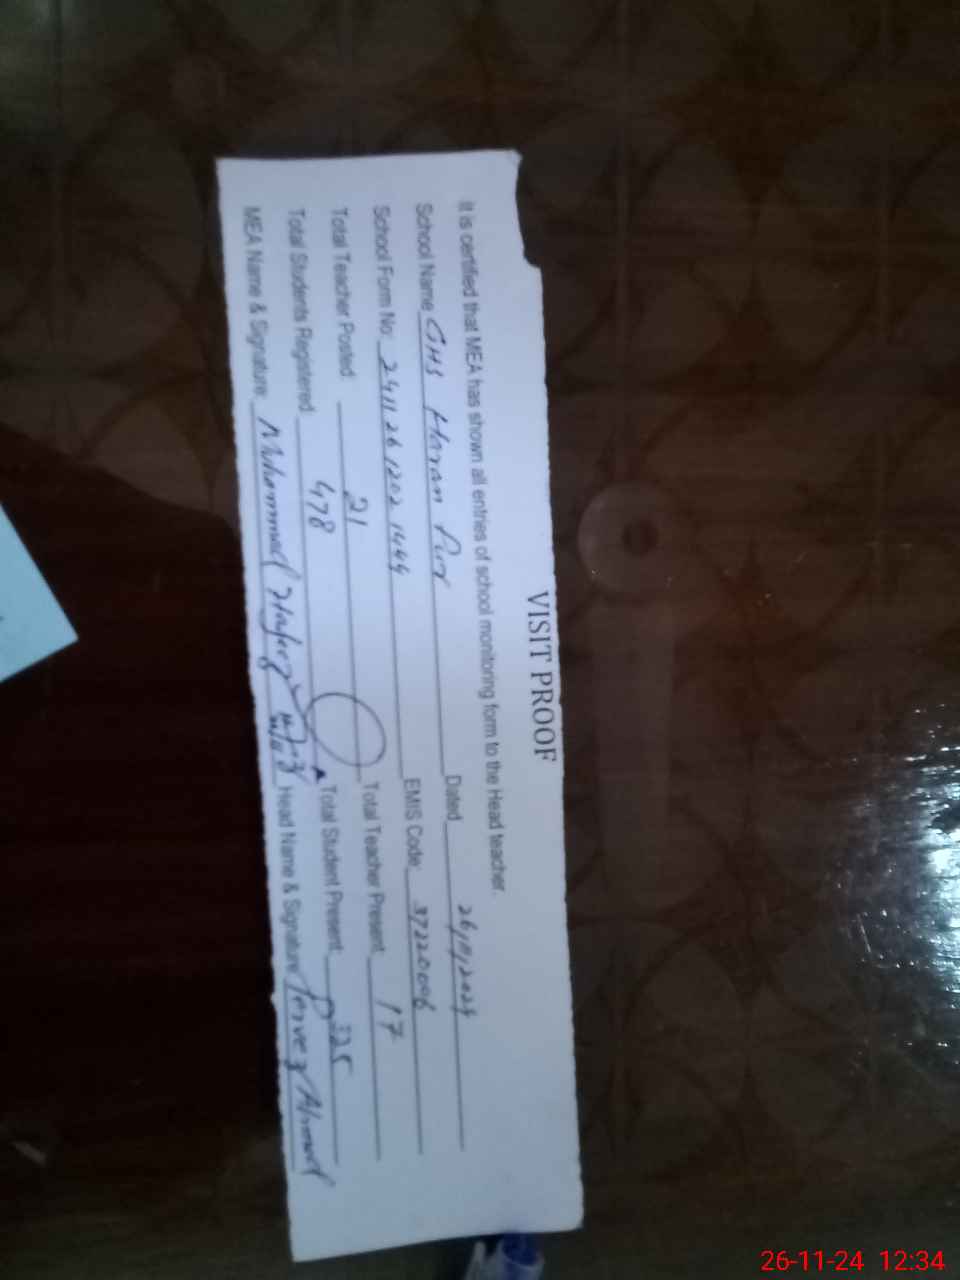 VISIT PROOF
It is certified that MEA has shown all entries of school monitoring form to the Head teacher.
School Name GHS Haran Pur Dated 26/11/2024
School Form No: 2411261202 1444 EMIS Code: 37220006
Total Teacher Posted: 21 Total Teacher Present 17
Total Students Registered 478 Total Student Present 325
MEA Name & Signature: Muhammad Hafeez Head Name & Signature Pervez Ahmed
26-11-24 12:34